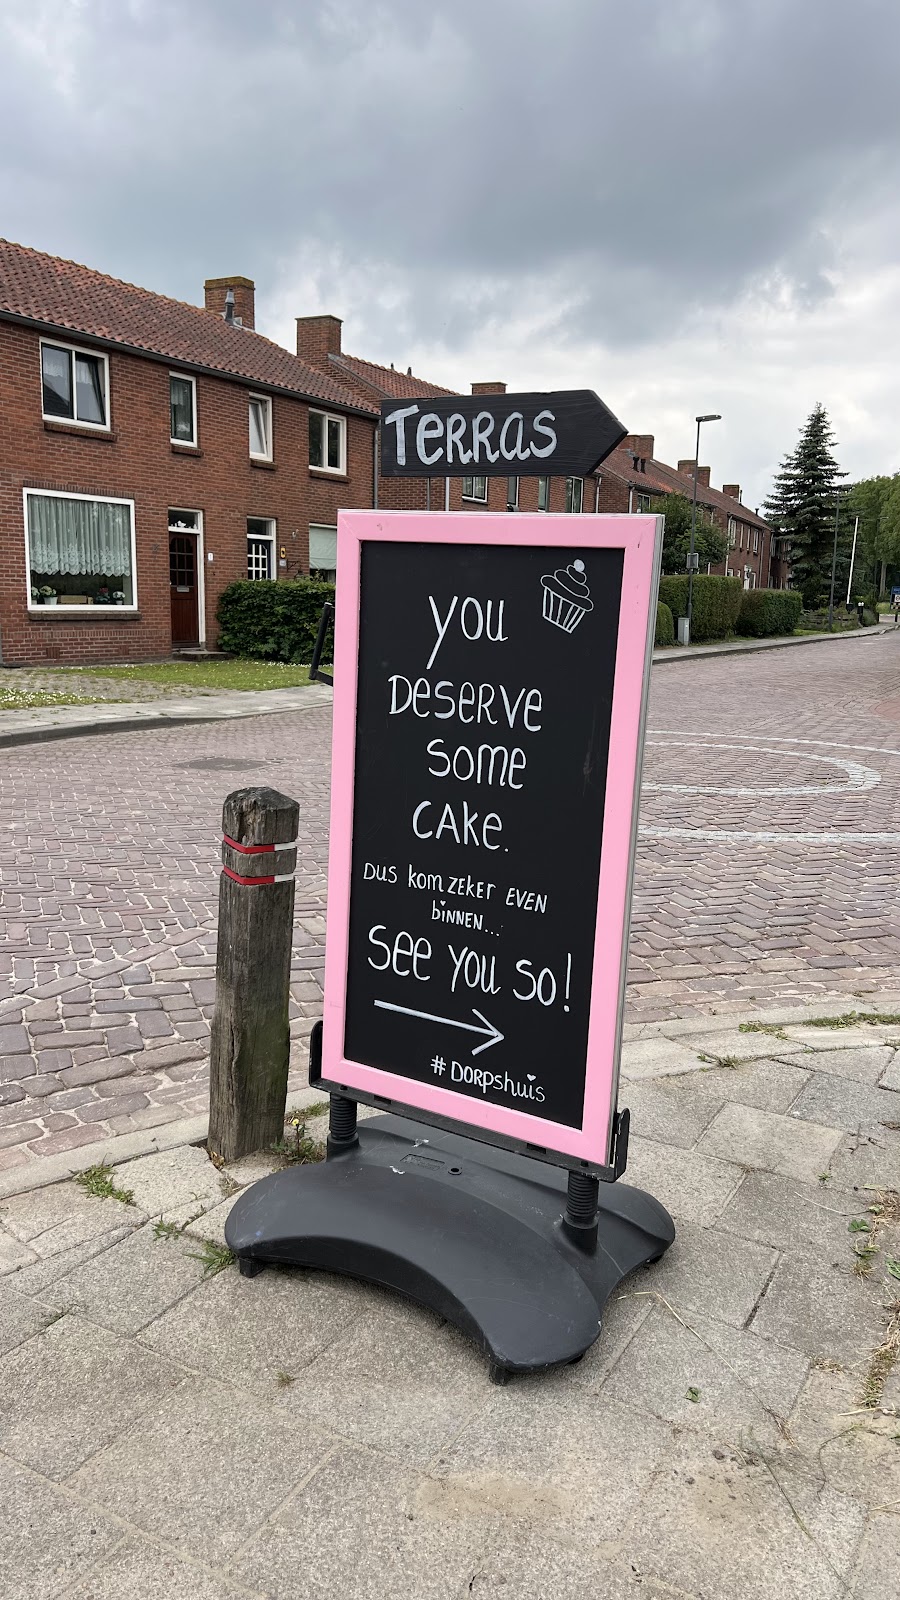 TERRAS
you
DESERVE
some
CAKE.
DUS kom ZEKER EVEN
biNNEN...
See you so!
# DORPshuis